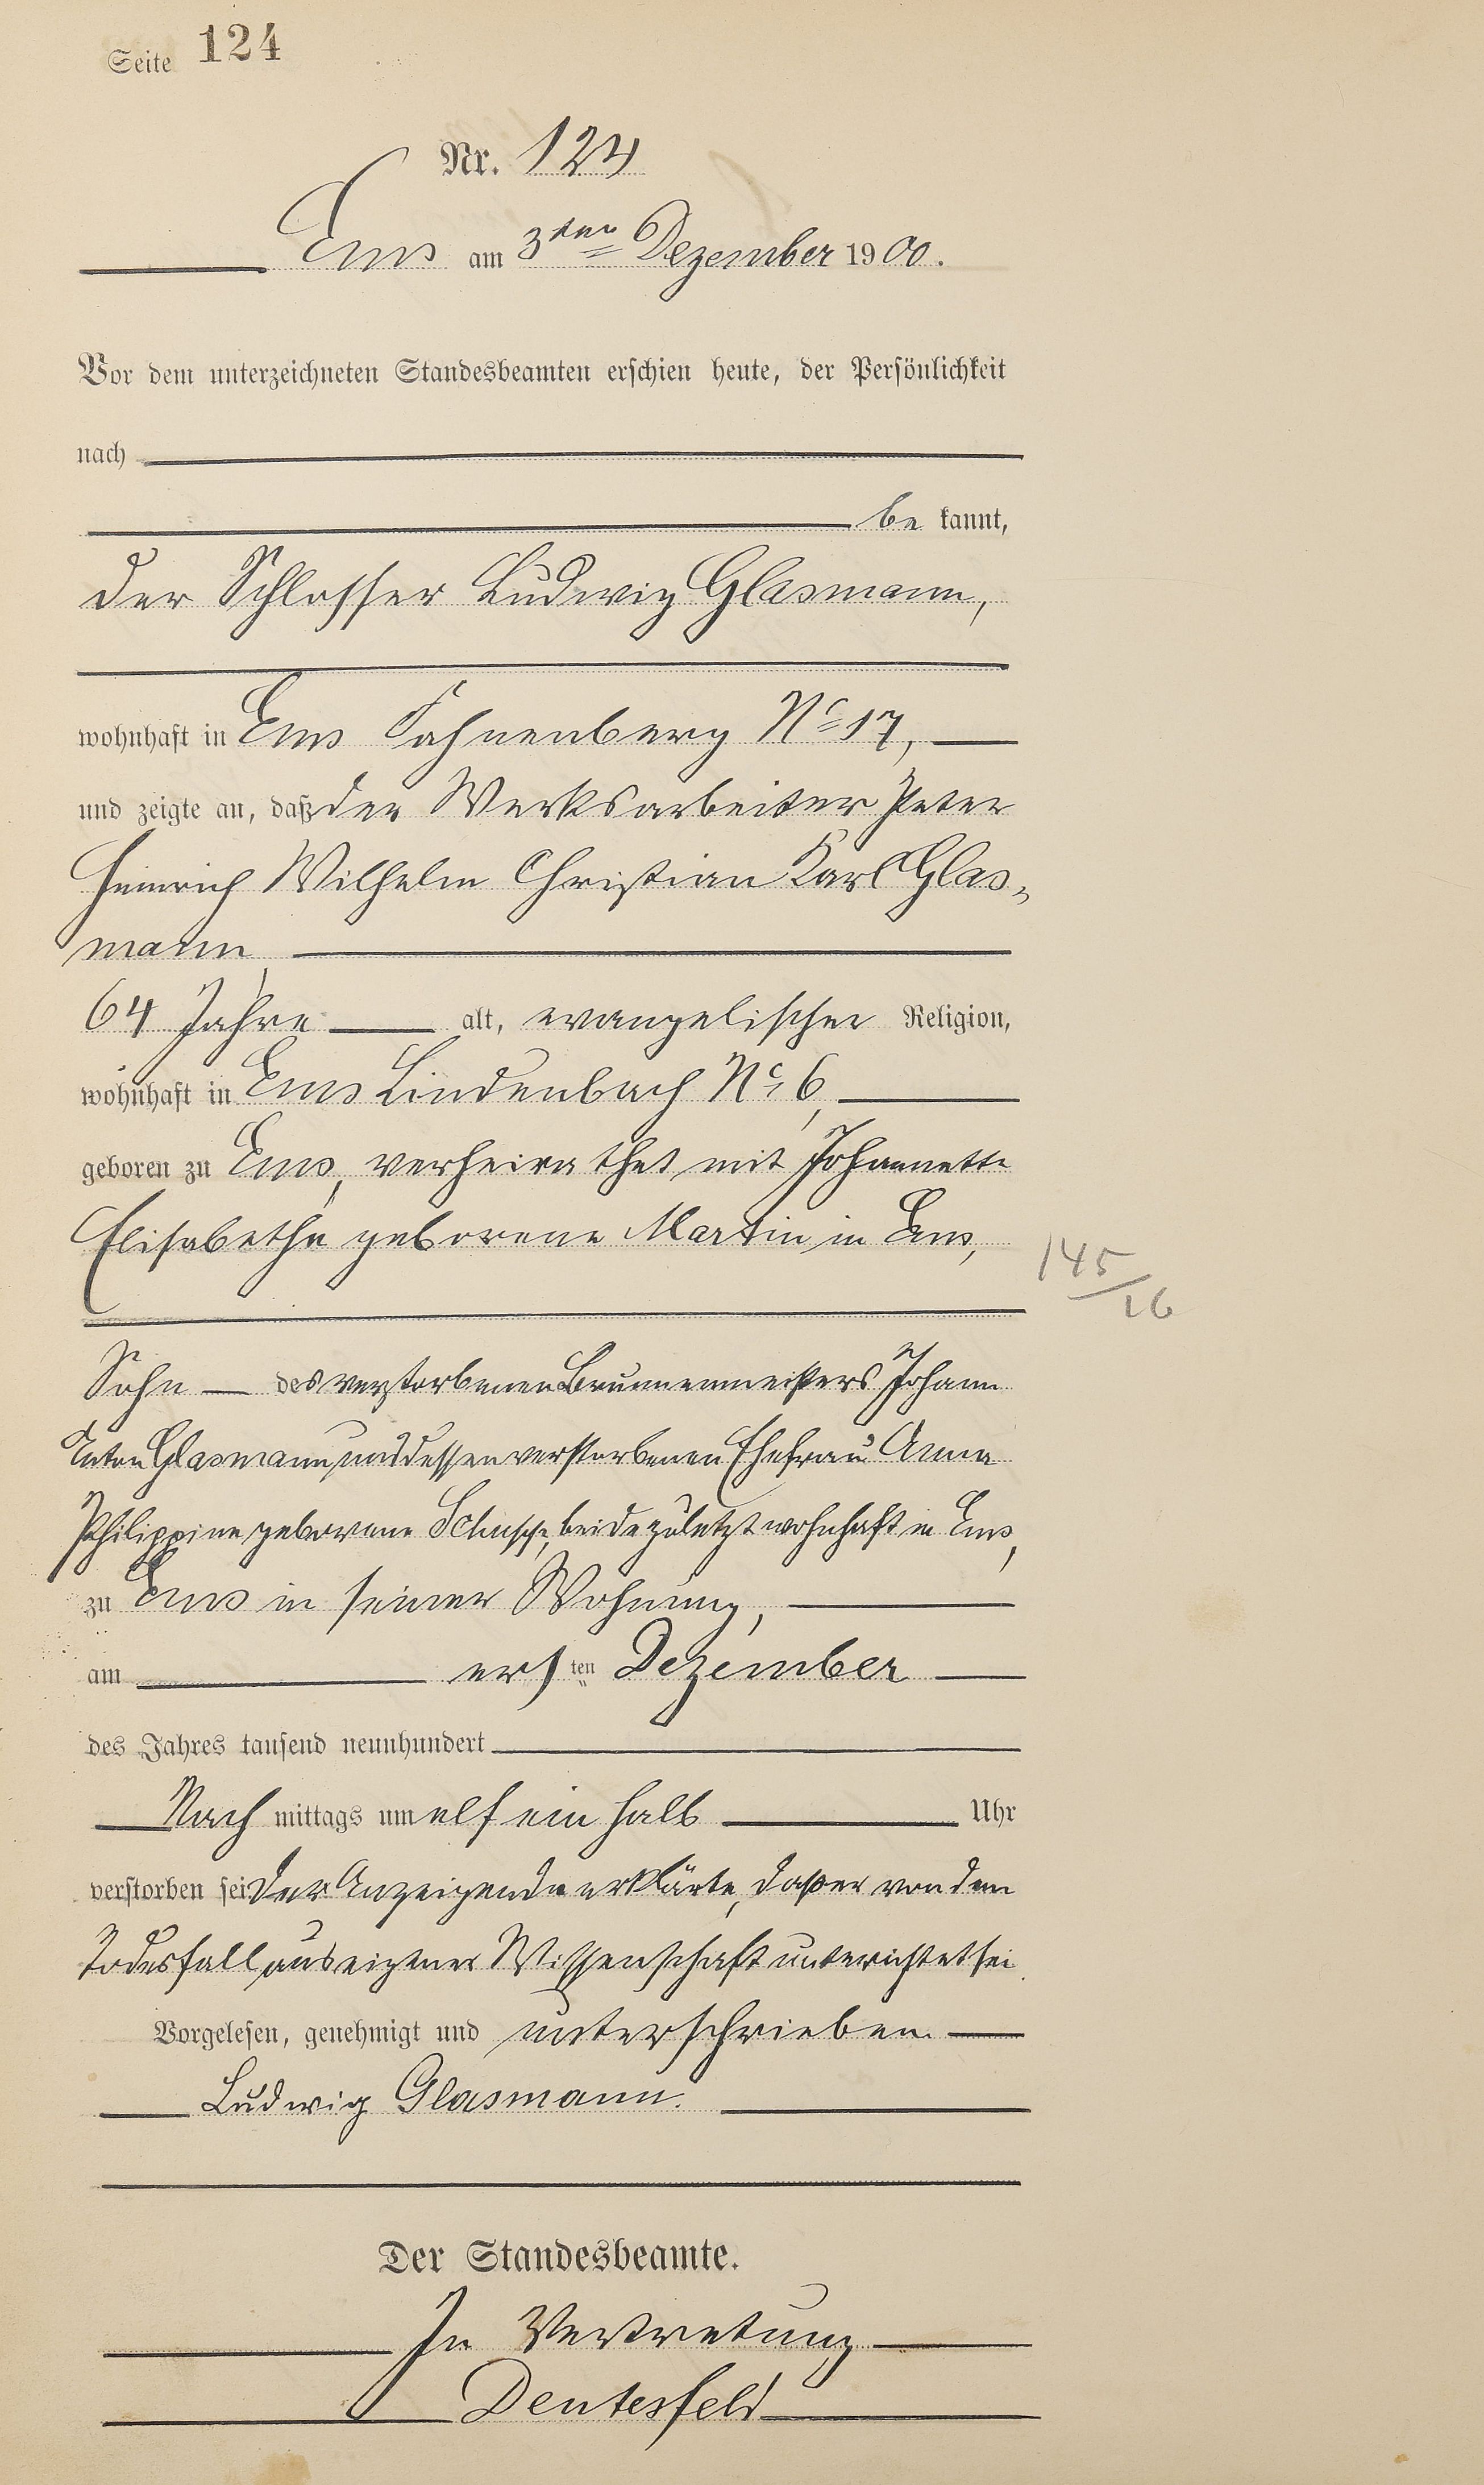 Seite 124
Nr. 124
Ems am 3ten Dezember 1900.
Vor dem unterzeichneten Standesbeamten erschien heute, der Persönlichkeit
nach
be kannt,
der Schlosser Ludwig Glasmann,
wohnhaft in Ems Fahnenberg No 17,
und zeigte an, daß der Werksarbeiter Peter
Heinrich Wilhelm Christian Karl Glas-
mann,
64 Jahre alt, evangelischer Religion,
wohnhaft in Ems Lindenbach No 6,
geboren zu Ems, verheirathet mit Johannette
Elisabethe geborene Martin in Ems,
145/16
Sohn des verstorbenen Brunnenmeisters Johann
Anton Glasmann und dessen verstorbenen Ehefrau Anna
Philippine geborene beide zuletzt wohnhaft in Ems,
zu Ems in seiner Wohnung,
am ersten Dezember
des Jahres tausend neunhundert
Nach mittags um elf ein halb Uhr
verstorben sei. Der Anzeigende erklärte, daß er von dem
Todesfall aus eigener Wissenschaft unterrichtet sei.
Vorgelesen, genehmigt und unterschrieben
Ludwig Glasmann.
Der Standesbeamte.
In Vertretung
Deutesfeld